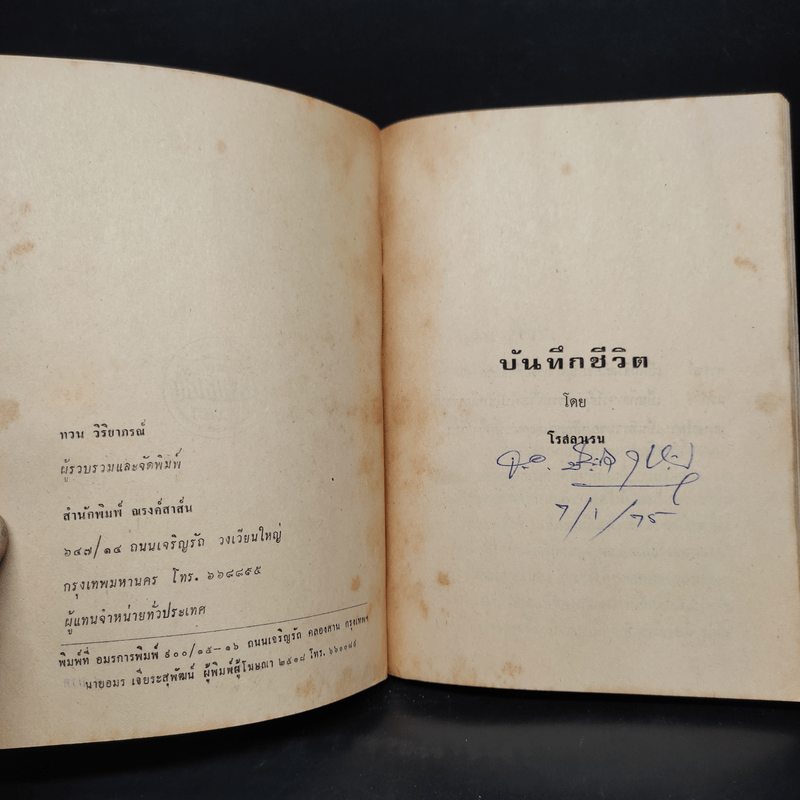 ทวน วิริยาภรณ์
ผู้รวบรวมและจัดพิมพ์
สำนักพิมพ์ ณรงค์สาส์น
๖๔๗/๑๔ ถนนเจริญรัถ วงเวียนใหญ่
กรุงเทพมหานคร โทร. ๖๖๘๘๙๕
ผู้แทนจำหน่ายทั่วประเทศ
พิมพ์ที่ อมรการพิมพ์ ๙๐๐/๑๕-๑๖ ถนนเจริญรัถ คลองสาน กรุงเทพฯ
นายอมร เจียระสุพัฒน์ ผู้พิมพ์ผู้โฆษณา ๒๕๑๘ โทร.
บันทึกชีวิต
โดย
โรสลาเรน
7/1/75